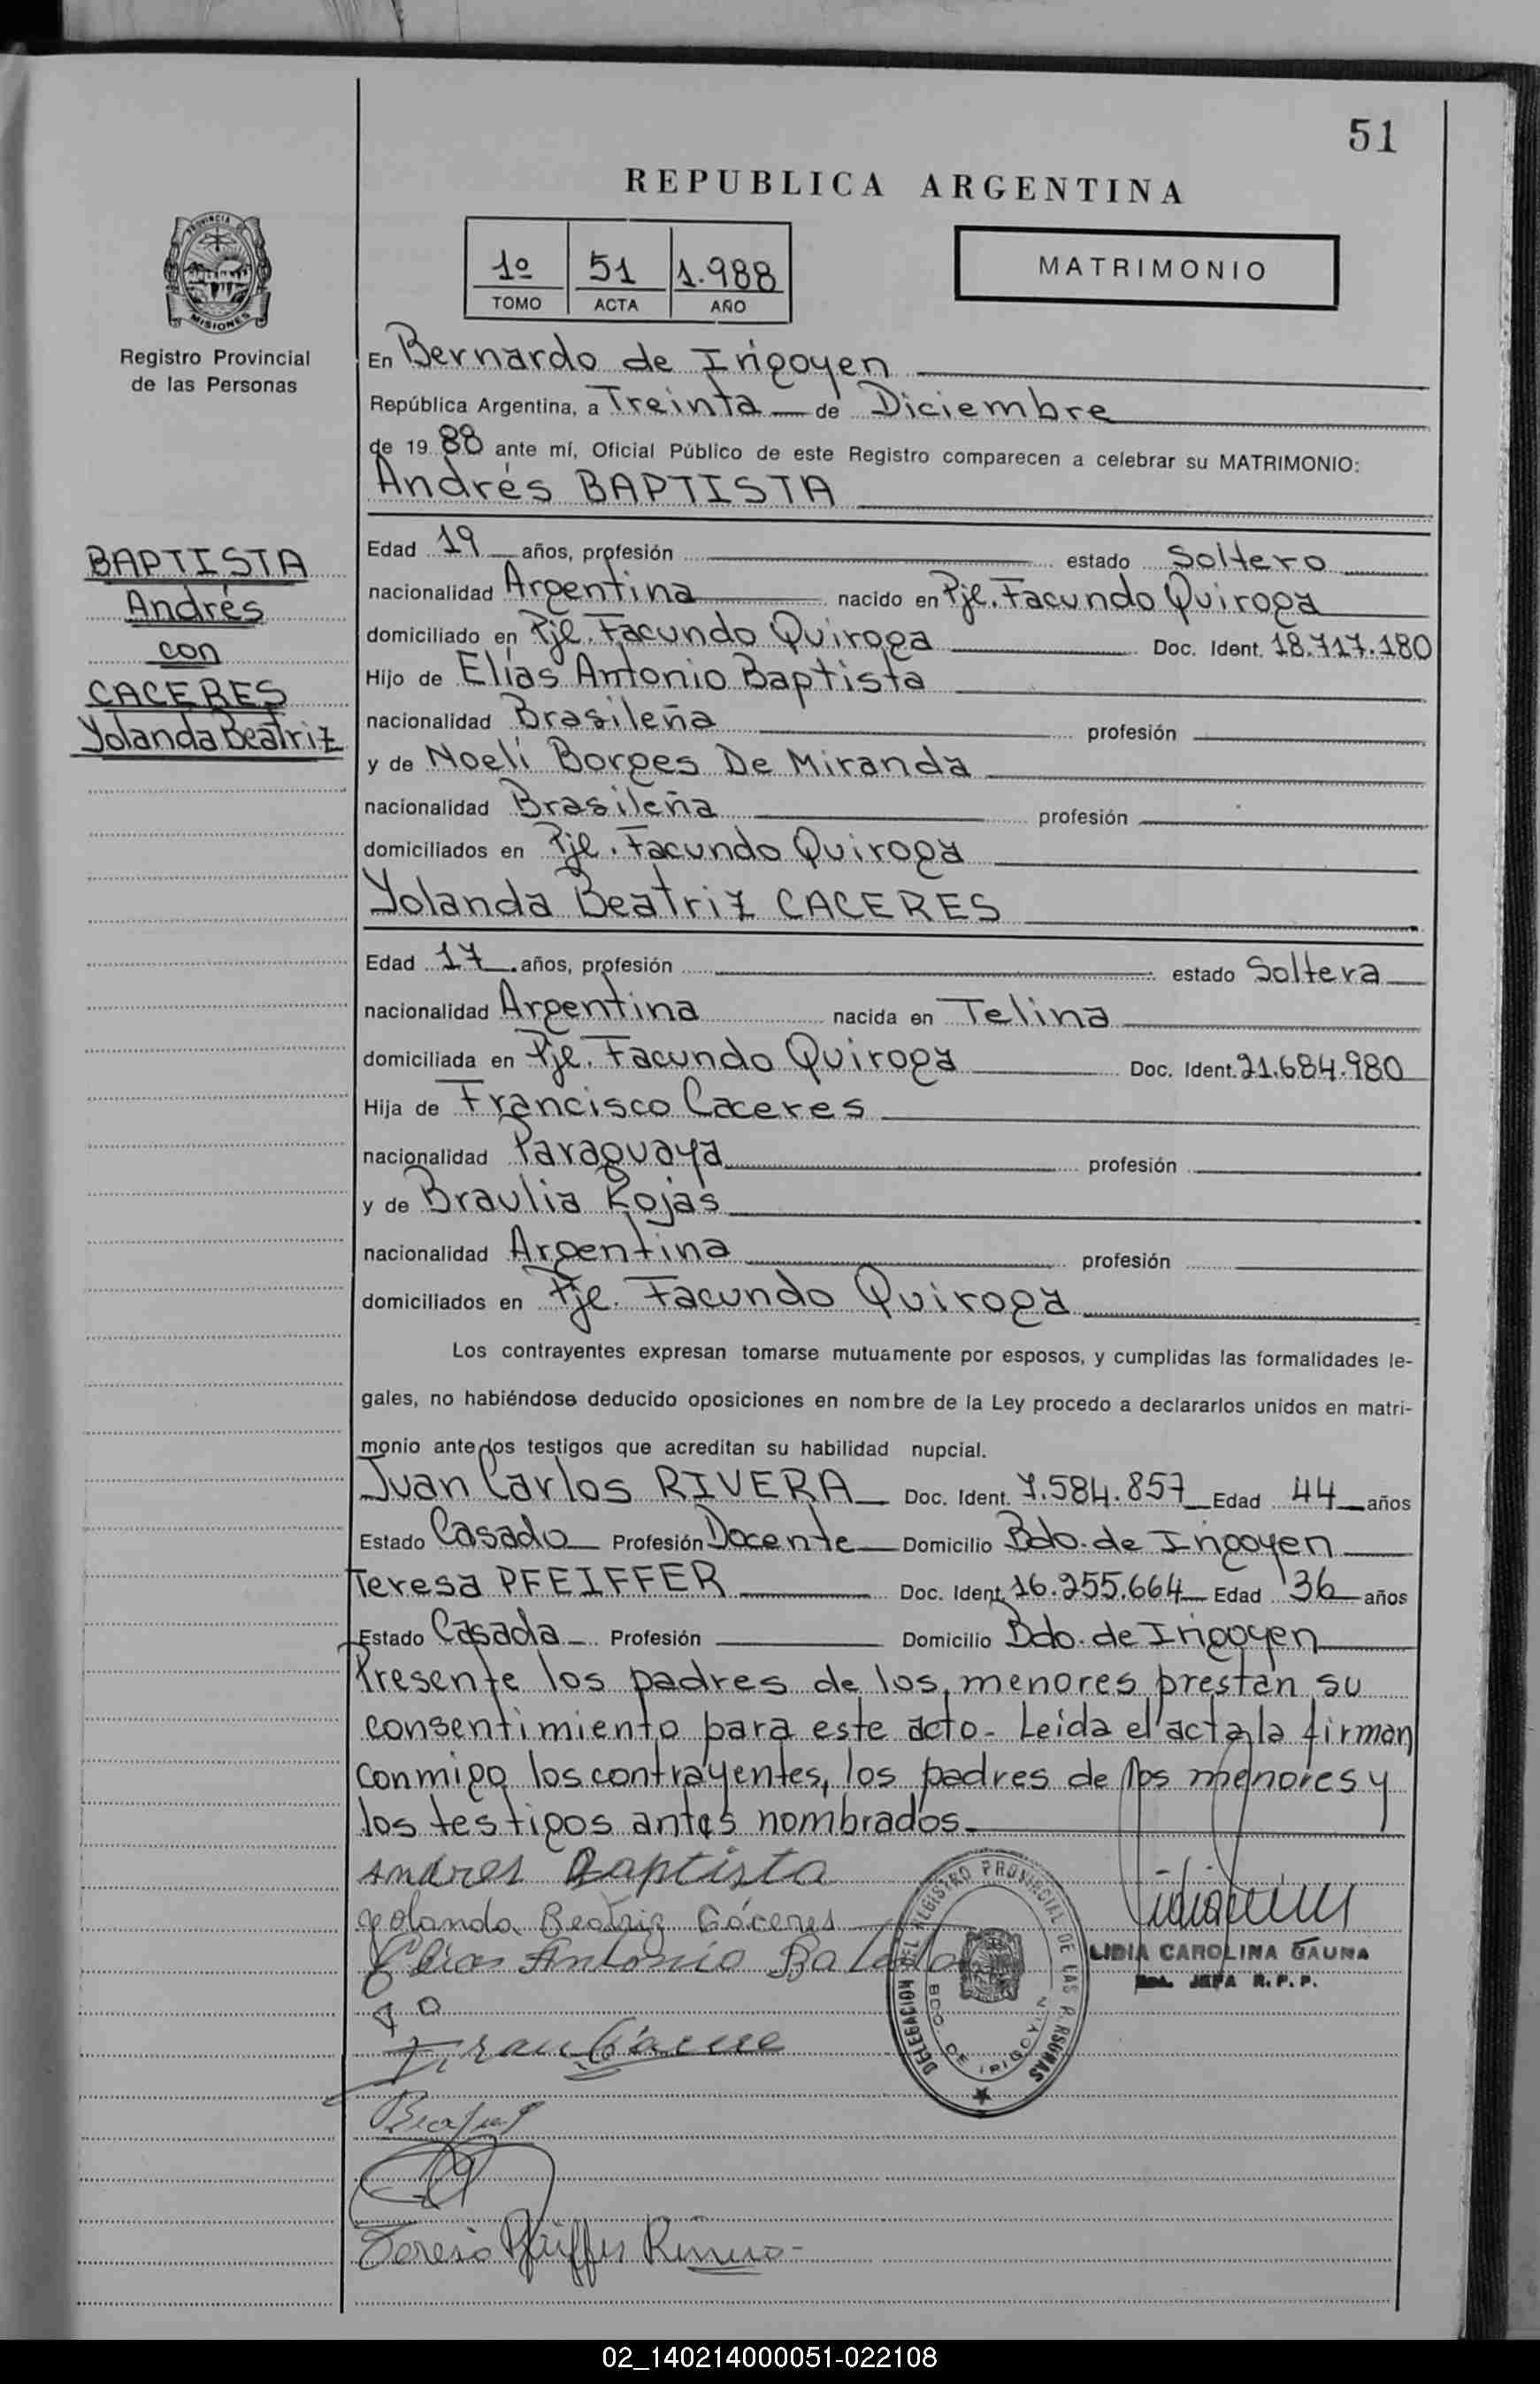 51
REPUBLICA ARGENTINA
PROVINCIA DE
MISIONES
Registro Provincial
de las Personas
1º 51 1.988
TOMO ACTA AÑO
MATRIMONIO
En Bernardo de Irigoyen
República Argentina, a Treinta de Diciembre
de 19 88 ante mí, Oficial Público de este Registro comparecen a celebrar su MATRIMONIO:
Andrés BAPTISTA
BAPTISTA
Andrés
con
CACERES
Yolanda Beatriz
Edad 19 años, profesión estado Soltero
nacionalidad Argentina nacido en Pje. Facundo Quiroga
domiciliado en Pje. Facundo Quiroga Doc. Ident. 18.717.180
Hijo de Elías Antonio Baptista
nacionalidad Brasileña profesión
y de Noelí Borges De Miranda
nacionalidad Brasileña profesión
domiciliados en Pje. Facundo Quiroga
Yolanda Beatriz CACERES
Edad 17 años, profesión estado Soltera
nacionalidad Argentina nacida en Telina
domiciliada en Pje. Facundo Quiroga Doc. Ident. 21.684.980
Hija de Francisco Caceres
nacionalidad Paraguaya profesión
y de Braulia Rojas
nacionalidad Argentina profesión
domiciliados en Pje. Facundo Quiroga
Los contrayentes expresan tomarse mutuamente por esposos, y cumplidas las formalidades le-
gales, no habiéndose deducido oposiciones en nombre de la Ley procedo a declararlos unidos en matri-
monio ante los testigos que acreditan su habilidad nupcial.
Juan Carlos RIVERA Doc. Ident. 7.584.857 Edad 44 años
Estado Casado Profesión Docente Domicilio Bdo. de Irigoyen
Teresa PFEIFFER Doc. Ident. 16.255.664 Edad 36 años
Estado Casada Profesión Domicilio Bdo. de Irigoyen
Presente los padres de los menores prestan su
consentimiento para este acto - Leída el acta la firman
conmigo los contrayentes, los padres de los menores y
los testigos antes nombrados.
Andres Baptista
Yolanda Beatriz Cáceres
Elias Antonio
DELEGACION DEL REGISTRO PROVINCIAL DE LAS PERSONAS
BDO. DE IRIGOYEN
LIDIA CAROLINA GAUNA
JEFA R.P.P.
Teresa Pfeiffer
02_140214000051-022108